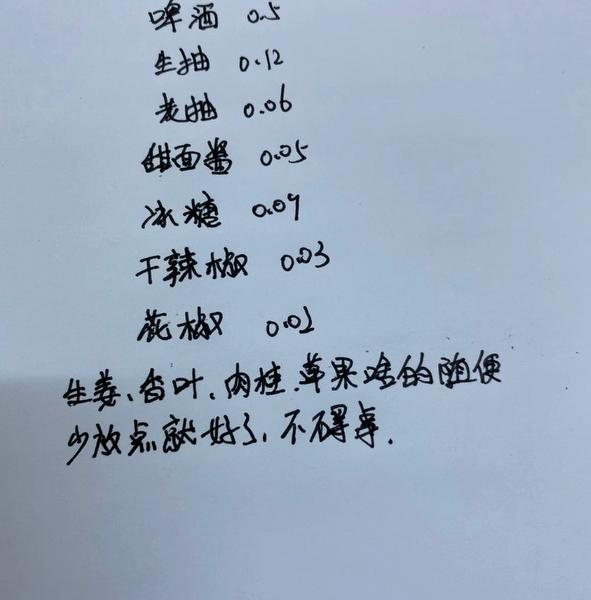 啤酒 0.5
生抽 0.12
老抽 0.06
甜面酱 0.05
冰糖 0.09
干辣椒 0.03
花椒 0.02
生姜、香叶、肉桂、草果啥的随便
少放点就好了，不碍事.